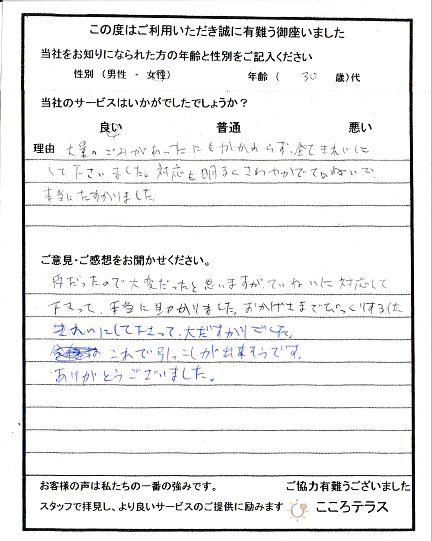 この度はご利用いただき誠に有難う御座いました
当社をお知りになられた方の年齢と性別をご記入ください
性別 （男性 ・ 女性） 年齢 （ 30 歳）代
当社のサービスはいかがでしたでしょうか？
良い 普通 悪い
理由 大量のごみがあったにもかかわらず、全てきれいに
して下さいました。対応も明るくさわやかでていねいで、
本当にたすかりました。
ご意見・ご感想をお聞かせください。
雨だったので大変だったと思いますが、ていねいに対応して
下さって、本当に助かりました。おかげさまでびっくりするほど
きれいにして下さって、大だすかりでした。
これで引っこしが出来そうです。
ありがとうございました。
お客様の声は私たちの一番の強みです。 ご協力有難うございました
スタッフで拝見し、より良いサービスのご提供に励みます こころテラス